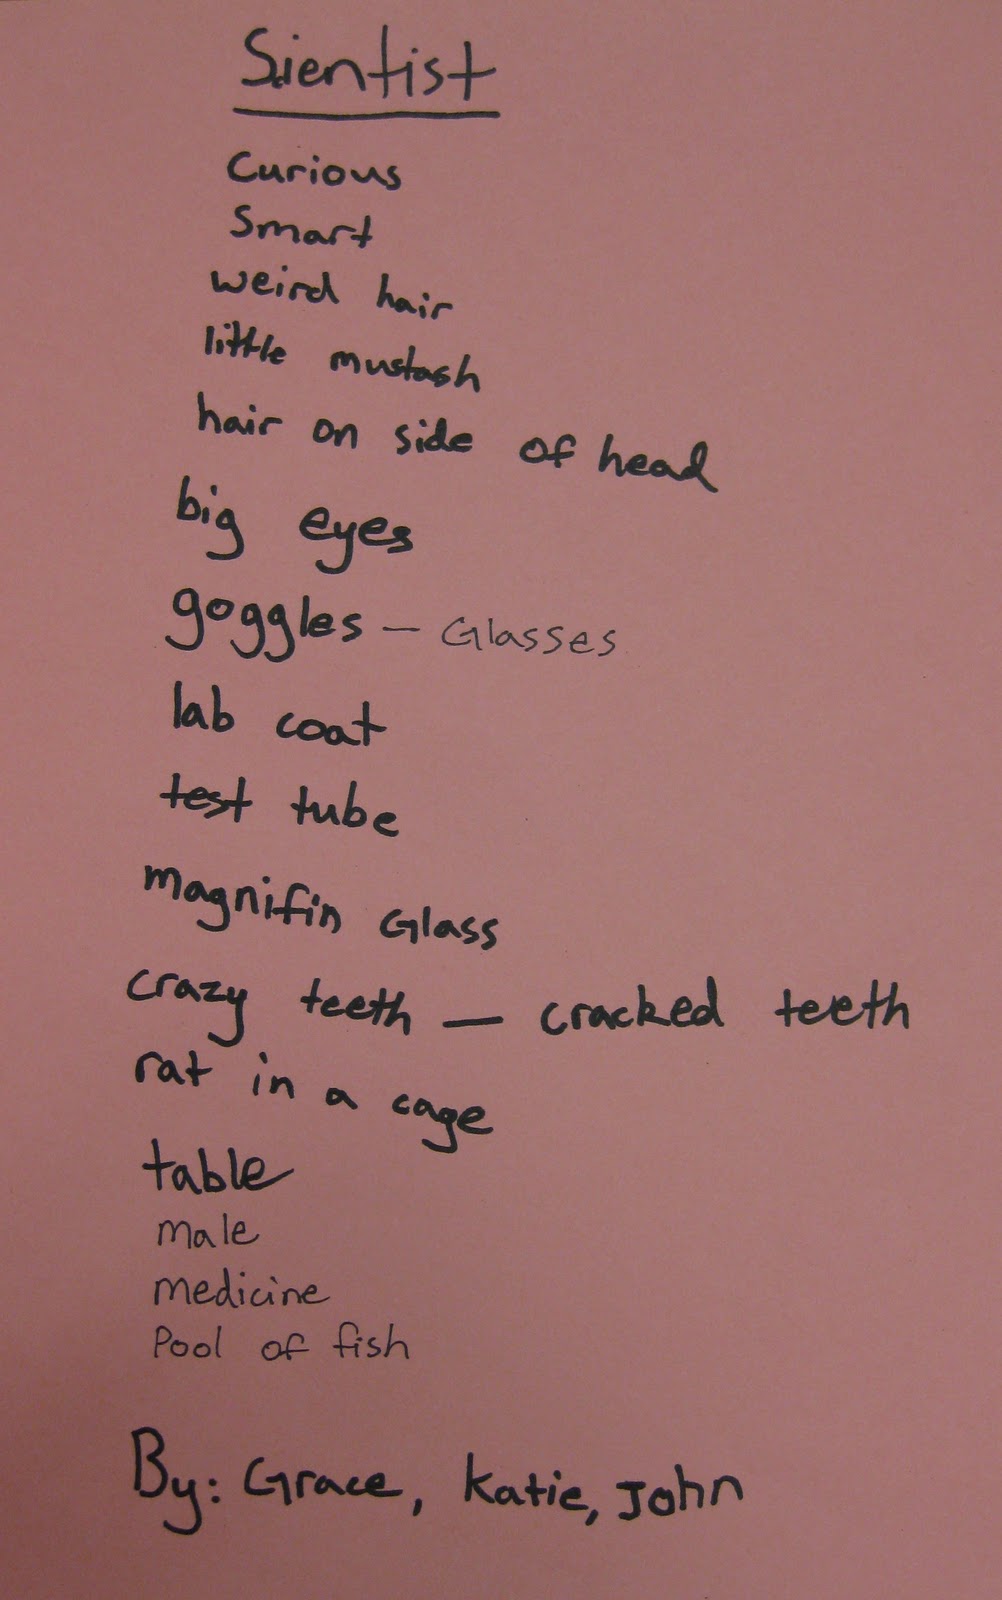 Sientist
Curious
Smart
weird hair
little mustash
hair on side of head
big eyes
goggles — Glasses
lab coat
test tube
magnifin Glass
crazy teeth — cracked teeth
rat in a cage
table
male
medicine
Pool of fish
By: Grace, Katie, John